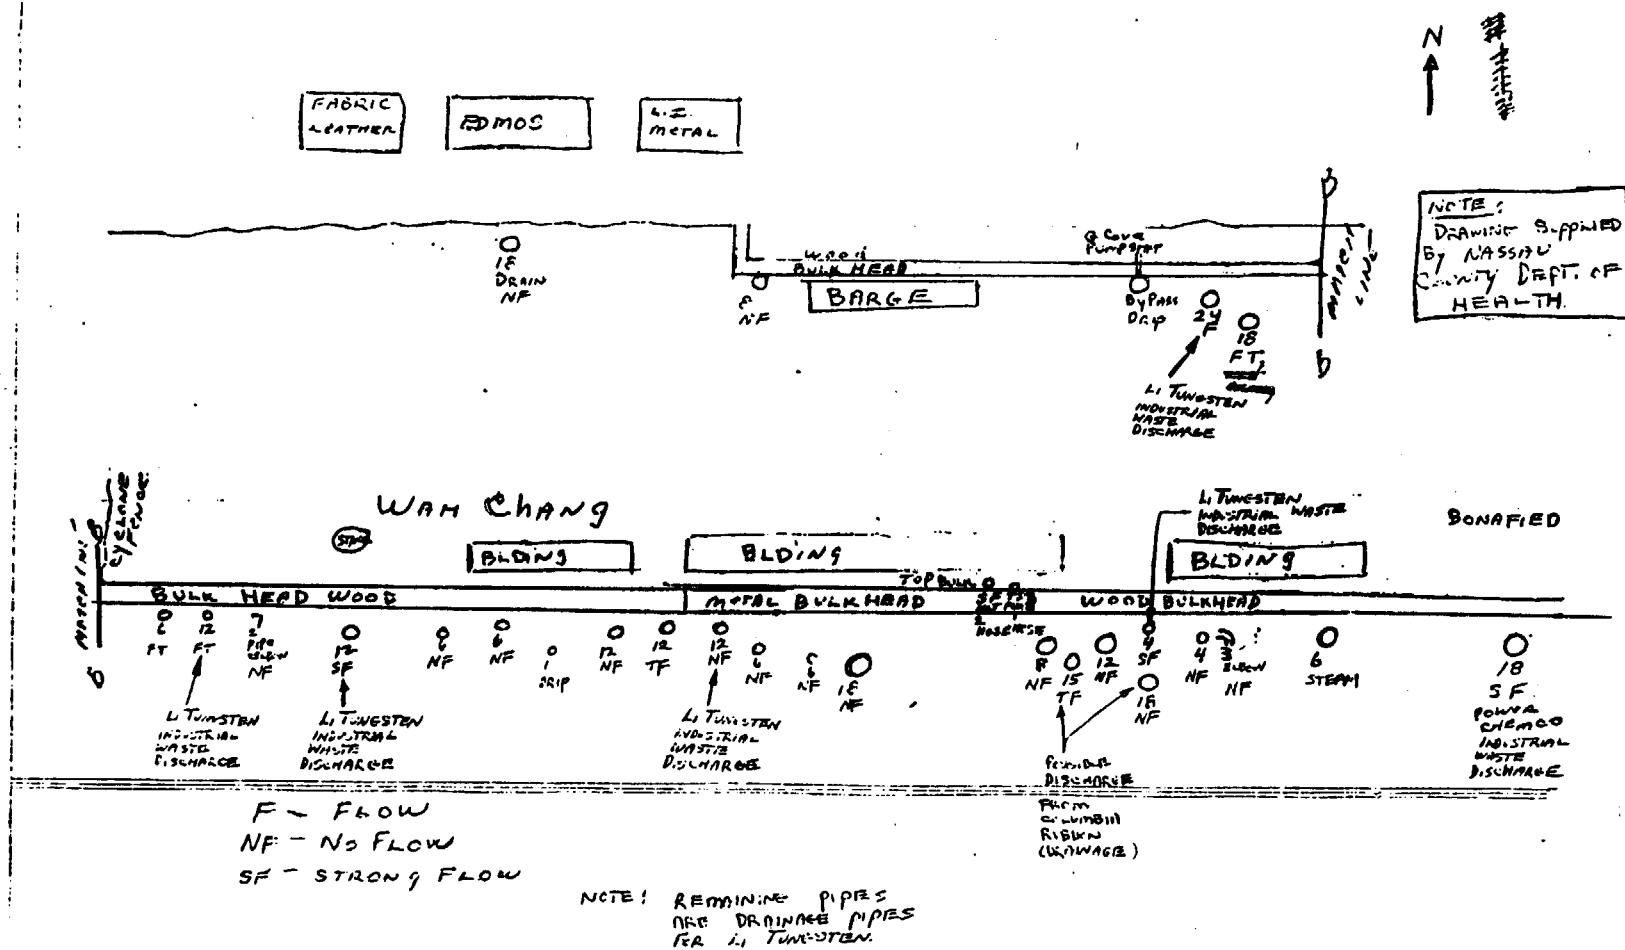 N
FABRIC
LEATHER
EDMOS
L.I.
METAL
NOTE:
DRAWING SUPPLIED
By NASSAU
COUNTY DEPT. OF
HEALTH.
18
DRAIN
NF
WOOD
BULK HEAD
BARGE
8
NF
G Cove
PUMP STAT
ByPASS
DRIP
24
18
FT,
LINE
Li TUNGSTEN
INDUSTRIAL
WASTE
DISCHARGE
CYCLONE
FENCE
WAH CHANG
BLDING
BLDING
Li TUNGSTEN
INDUSTRIAL WASTE
DISCHARGE
BLDING
BONAFIED
BULK HEAD WOOD
TOP BULK
METAL BULKHEAD
WOOD BULKHEAD
6
FT
12
FT
2
PIPE
NF
12
SF
6
NF
6
NF
1
DRIP
12
NF
12
TF
12
NF
6
NF
6
NF
18
NF
8
NF
15
TF
12
NF
4
SF
18
NF
4
NF
NF
6
STEAM
18
SF
POWER
CHEMCO
INDUSTRIAL
WASTE
DISCHARGE
Li TUNGSTEN
INDUSTRIAL
WASTE
DISCHARGE
Li TUNGSTEN
INDUSTRIAL
WASTE
DISCHARGE
Li TUNGSTEN
INDUSTRIAL
WASTE
DISCHARGE
POSSIBLE
DISCHARGE
FROM
COLUMBIA
RIBBON
(DRAINAGE)
F - FLOW
NF - NO FLOW
SF - STRONG FLOW
NOTE: REMAINING PIPES
ARE DRAINAGE PIPES
FOR Li TUNGSTEN.